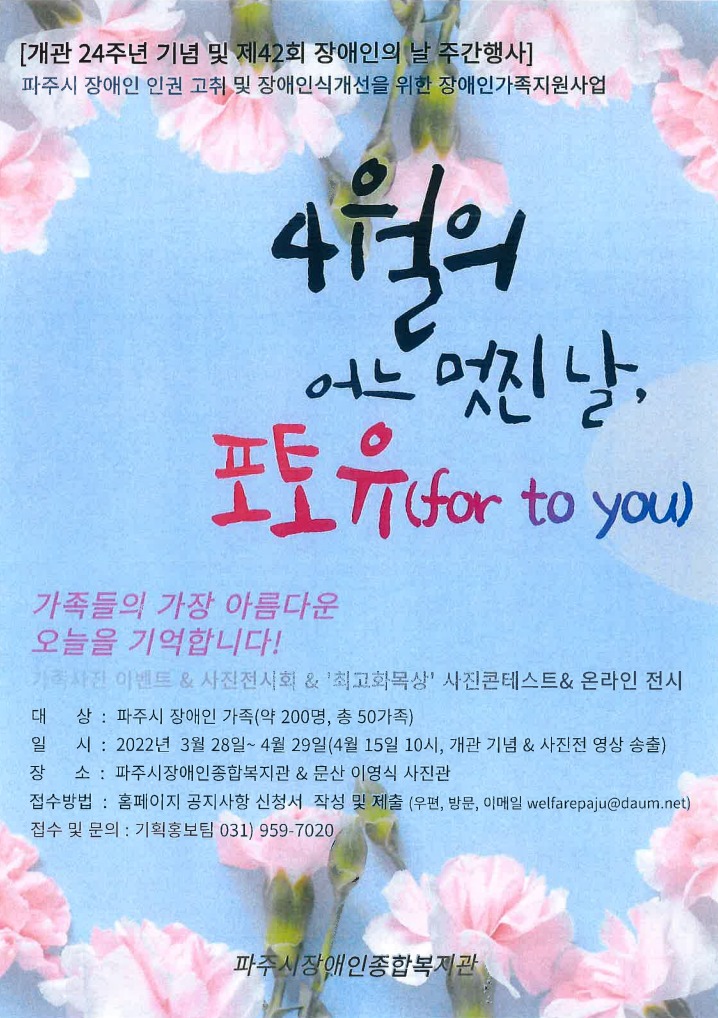 [개관 24주년 기념 및 제42회 장애인의 날 주간행사]
파주시 장애인 인권 고취 및 장애인식개선을 위한 장애인가족지원사업
4월의
어느 멋진 날,
포토유(for to you)
가족들의 가장 아름다운
오늘을 기억합니다!
가족사진 이벤트 & 사진전시회 & '최고화목상' 사진콘테스트& 온라인 전시
대 상 : 파주시 장애인 가족(약 200명, 총 50가족)
일 시 : 2022년 3월 28일~ 4월 29일(4월 15일 10시, 개관 기념 & 사진전 영상 송출)
장 소 : 파주시장애인종합복지관 & 문산 이영식 사진관
접수방법 : 홈페이지 공지사항 신청서 작성 및 제출 (우편, 방문, 이메일 welfarepaju@daum.net)
접수 및 문의 : 기획홍보팀 031) 959-7020
파주시장애인종합복지관